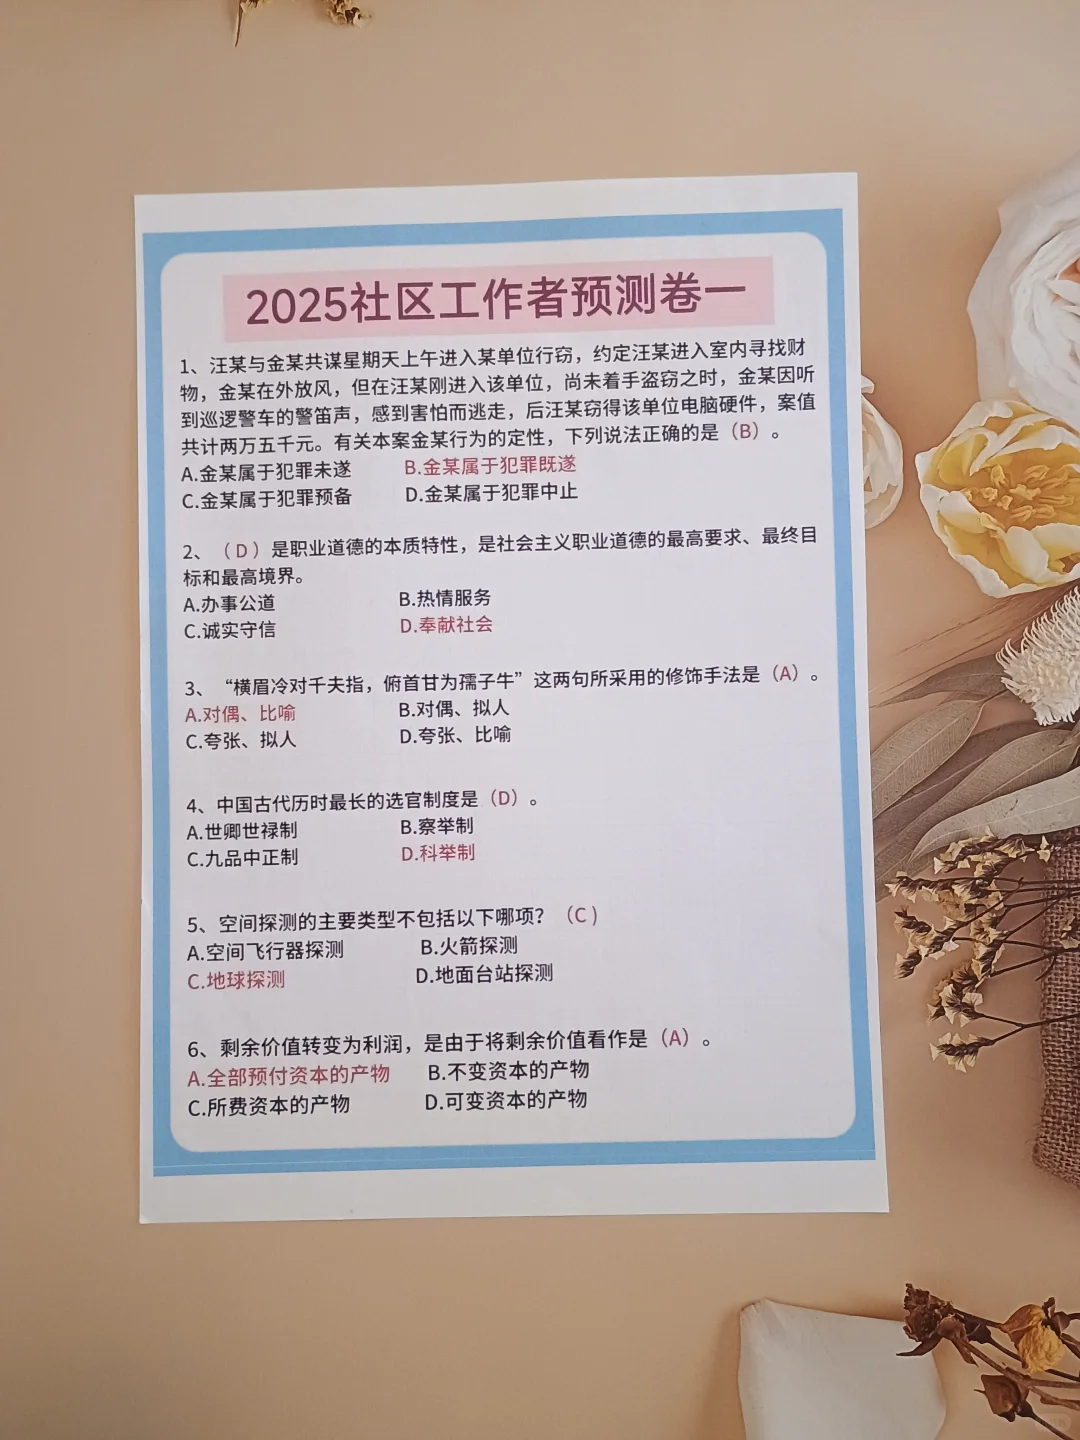 2025社区工作者预测卷一
1、汪某与金某共谋星期天上午进入某单位行窃，约定汪某进入室内寻找财
物，金某在外放风，但在汪某刚进入该单位，尚未着手盗窃之时，金某因听
到巡逻警车的警笛声，感到害怕而逃走，后汪某窃得该单位电脑硬件，案值
共计两万五千元。有关本案金某行为的定性，下列说法正确的是（B）。
A.金某属于犯罪未遂 B.金某属于犯罪既遂
C.金某属于犯罪预备 D.金某属于犯罪中止
2、（D）是职业道德的本质特性，是社会主义职业道德的最高要求、最终目
标和最高境界。
A.办事公道 B.热情服务
C.诚实守信 D.奉献社会
3、“横眉冷对千夫指，俯首甘为孺子牛”这两句所采用的修饰手法是（A）。
A.对偶、比喻 B.对偶、拟人
C.夸张、拟人 D.夸张、比喻
4、中国古代历时最长的选官制度是（D）。
A.世卿世禄制 B.察举制
C.九品中正制 D.科举制
5、空间探测的主要类型不包括以下哪项？（C）
A.空间飞行器探测 B.火箭探测
C.地球探测 D.地面台站探测
6、剩余价值转变为利润，是由于将剩余价值看作是（A）。
A.全部预付资本的产物 B.不变资本的产物
C.所费资本的产物 D.可变资本的产物